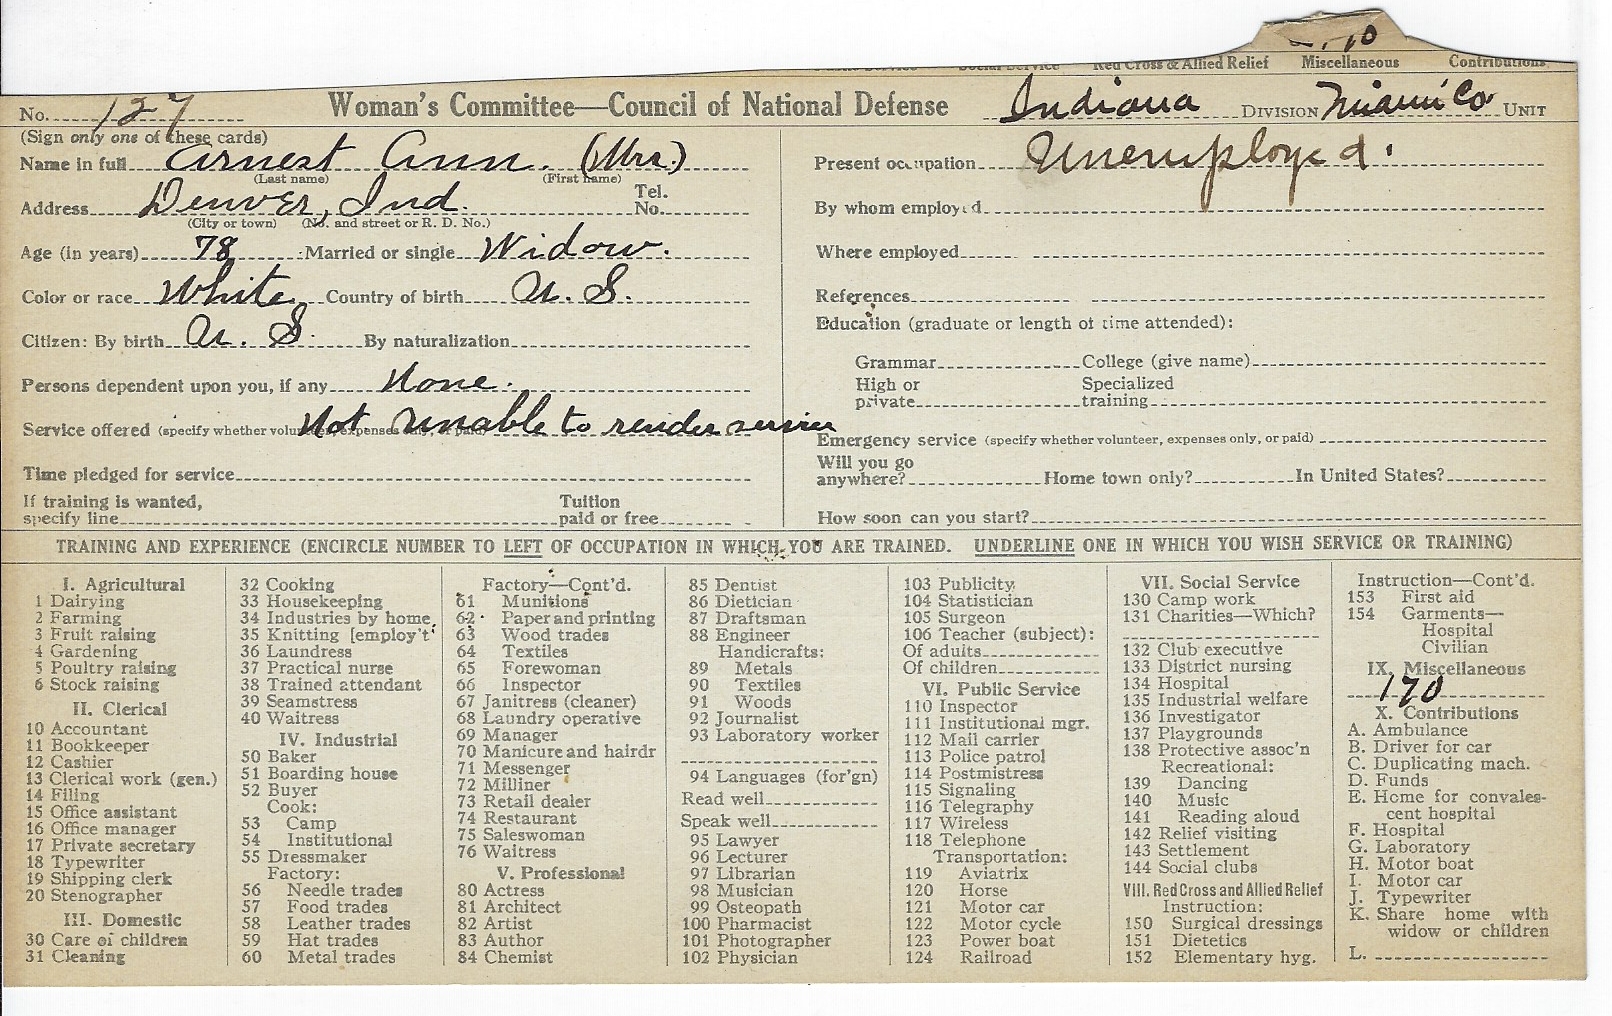 170
Social Service Red Cross & Allied Relief Miscellaneous Contributions
No. 127 Woman's Committee—Council of National Defense Indiana DIVISION Miami Co. UNIT
(Sign only one of these cards)
Name in full Arnest Ann. (Mrs.) Present occupation Unemployed.
(Last name) (First name)
Address Denver, Ind. Tel. No. By whom employed
(City or town) (No. and street or R. D. No.)
Age (in years) 78 Married or single Widow. Where employed
Color or race White Country of birth U. S. References
Citizen: By birth U. S. By naturalization Education (graduate or length of time attended):
Grammar College (give name)
Persons dependent upon you, if any None. High or private Specialized training
Service offered (specify whether volunteer, expenses only, or paid) Not unable to render service Emergency service (specify whether volunteer, expenses only, or paid)
Time pledged for service Will you go anywhere? Home town only? In United States?
If training is wanted, specify line Tuition paid or free How soon can you start?
TRAINING AND EXPERIENCE (ENCIRCLE NUMBER TO LEFT OF OCCUPATION IN WHICH YOU ARE TRAINED. UNDERLINE ONE IN WHICH YOU WISH SERVICE OR TRAINING)
I. Agricultural
1 Dairying
2 Farming
3 Fruit raising
4 Gardening
5 Poultry raising
6 Stock raising
II. Clerical
10 Accountant
11 Bookkeeper
12 Cashier
13 Clerical work (gen.)
14 Filing
15 Office assistant
16 Office manager
17 Private secretary
18 Typewriter
19 Shipping clerk
20 Stenographer
III. Domestic
30 Care of children
31 Cleaning
32 Cooking
33 Housekeeping
34 Industries by home
35 Knitting [employ't
36 Laundress
37 Practical nurse
38 Trained attendant
39 Seamstress
40 Waitress
IV. Industrial
50 Baker
51 Boarding house
52 Buyer
Cook:
53 Camp
54 Institutional
55 Dressmaker
Factory:
56 Needle trades
57 Food trades
58 Leather trades
59 Hat trades
60 Metal trades
Factory—Cont'd.
61 Munitions
62 Paper and printing
63 Wood trades
64 Textiles
65 Forewoman
66 Inspector
67 Janitress (cleaner)
68 Laundry operative
69 Manager
70 Manicure and hairdr
71 Messenger
72 Milliner
73 Retail dealer
74 Restaurant
75 Saleswoman
76 Waitress
V. Professional
80 Actress
81 Architect
82 Artist
83 Author
84 Chemist
85 Dentist
86 Dietician
87 Draftsman
88 Engineer
Handicrafts:
89 Metals
90 Textiles
91 Woods
92 Journalist
93 Laboratory worker
94 Languages (for'gn)
Read well
Speak well
95 Lawyer
96 Lecturer
97 Librarian
98 Musician
99 Osteopath
100 Pharmacist
101 Photographer
102 Physician
103 Publicity
104 Statistician
105 Surgeon
106 Teacher (subject):
Of adults
Of children
VI. Public Service
110 Inspector
111 Institutional mgr.
112 Mail carrier
113 Police patrol
114 Postmistress
115 Signaling
116 Telegraphy
117 Wireless
118 Telephone
Transportation:
119 Aviatrix
120 Horse
121 Motor car
122 Motor cycle
123 Power boat
124 Railroad
VII. Social Service
130 Camp work
131 Charities—Which?
132 Club executive
133 District nursing
134 Hospital
135 Industrial welfare
136 Investigator
137 Playgrounds
138 Protective assoc'n
Recreational:
139 Dancing
140 Music
141 Reading aloud
142 Relief visiting
143 Settlement
144 Social clubs
VIII. Red Cross and Allied Relief
Instruction:
150 Surgical dressings
151 Dietetics
152 Elementary hyg.
Instruction—Cont'd.
153 First aid
154 Garments—
Hospital
Civilian
IX. Miscellaneous
170
X. Contributions
A. Ambulance
B. Driver for car
C. Duplicating mach.
D. Funds
E. Home for convales-
cent hospital
F. Hospital
G. Laboratory
H. Motor boat
I. Motor car
J. Typewriter
K. Share home with
widow or children
L.